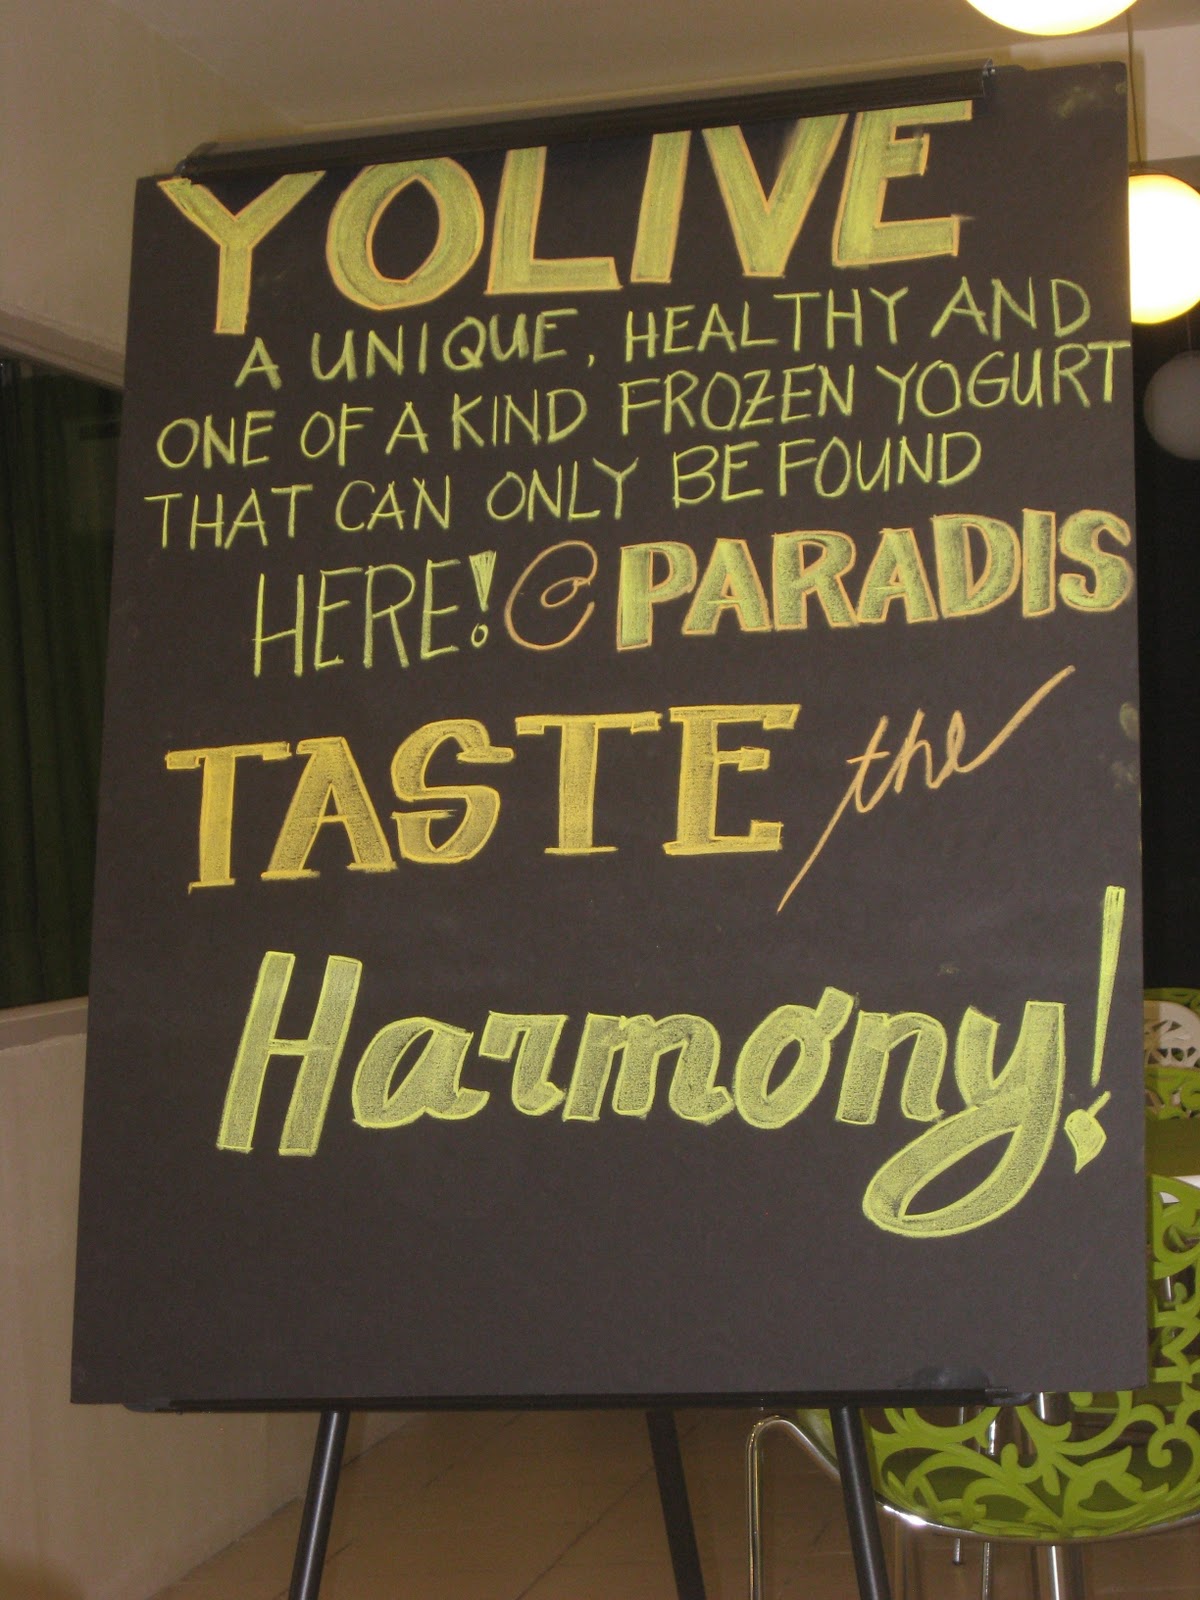 YOLIVE
A UNIQUE, HEALTHY AND
ONE OF A KIND FROZEN YOGURT
THAT CAN ONLY BE FOUND
HERE! @ PARADIS
TASTE the
Harmony!